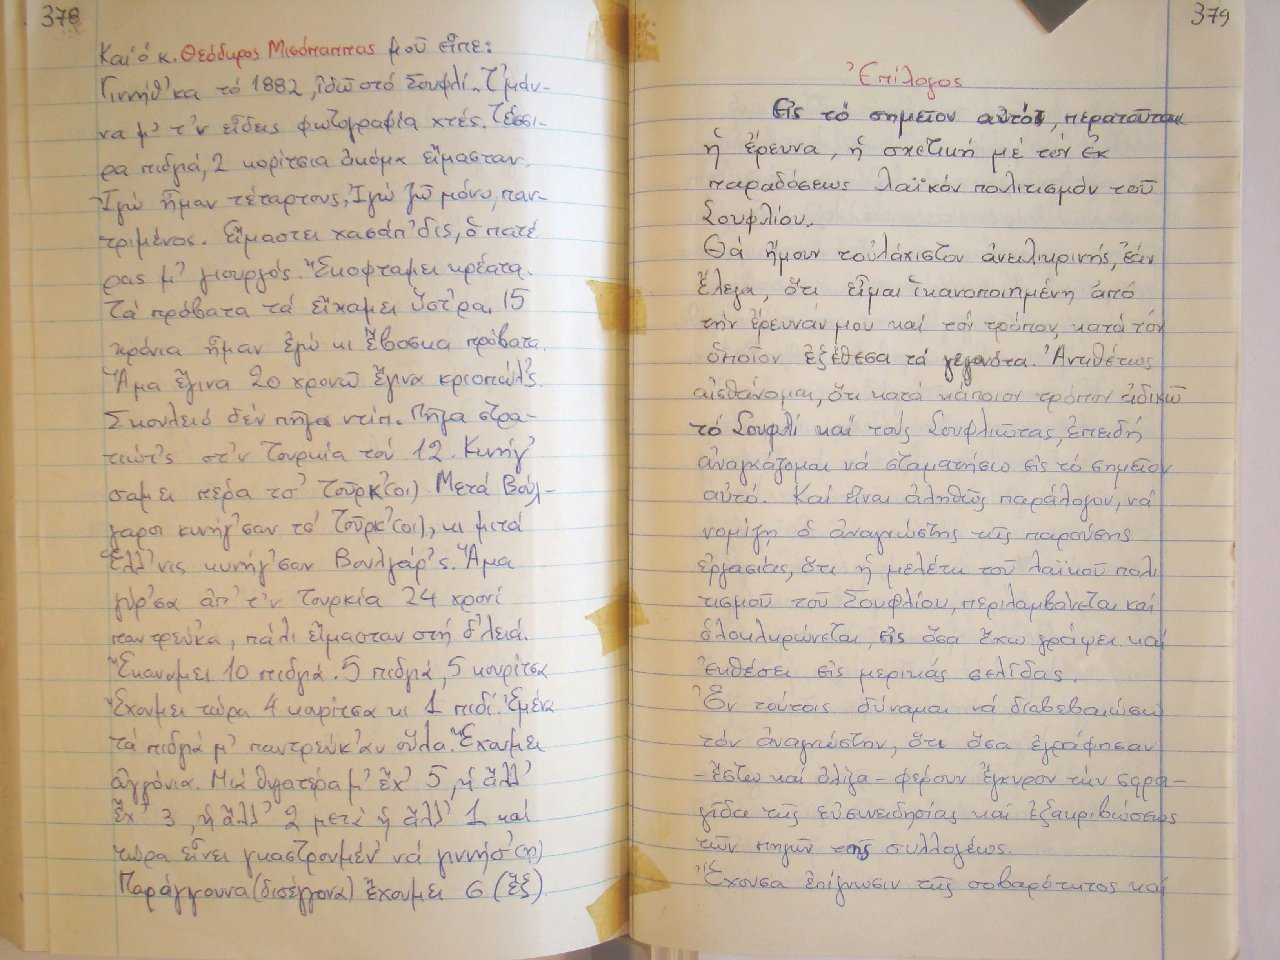 378
Καί ὁ κ. Θεόδωρος Μισόπαππας μοῦ εἶπε:
Γιννήθ'κα τό 1882, ἰδῶ στό Σουφλί. Τ'μάν-
να μ' τ'ν εἶδεις φωτογραφία χτές. Τέσσι-
ρα πιδγιά, 2 κορίτσια ἀκόμα εἴμασταν.
Ἰγώ ἤμαν τέταρτους, Ἰγώ ζῶ μόνο, παν-
τριμένος. Εἴμαστει χασάπ'δις, ὁ πατέ
ρας μ' γιουργός. Ἔκοφταμει κρέατα.
Τά πρόβατα τά εἴχαμει ὕστ'ρα. 15
χρόνια ἤμαν ἐγώ κι ἔβοσκα πρόβατα.
Ἅμα ἔγινα 20 χρονῶ ἔγινα κριοπώλ'ς.
Σκουλειό δέν πῆγα ντίπ. Πῆγα στρα-
τιώτ'ς στ'ν Τουρκία τού 12. Κυνήγ'
σαμει πέρα τσ' Τοῦρκ'(οι) Μετά Βούλ-
γαροι κυνήγ'σαν τσ' Τοῦρκ'(οι), κι μιτά
Ἕλλ'νις κυνήγ'σαν Βουλγάρ'ς. Ἅμα
γύρ'σα ἀπ' τ'ν Τουρκία 24 χρονῶ
παντρεύκα, πάλι εἴμασταν στή δ'λειά.
Ἔκαναμει 10 πιδγιά. 5 πιδγιά, 5 κουρίτσα
Ἔχουμει τώρα 4 καρίτσα κι 1 πιδί. Ἐμένα
τά πιδγιά μ' παντρεύκ'αν οὗλα. Ἔχουμει
ἀγγόνια. Μιά θυγατέρα μ' ἔχ' 5, ἡ ἄλλ'
ἔχ' 3, ἡ ἄλλ' 2 μετά ἡ ἄλλ' 1 καί
τώρα εἶνει γκαστρουμέν' νά γιννήσ'(η)
Παράγγουνα (δισέγγονα) ἔχουμει 6 (ἕξ).
379
Ἐπίλογος
Εἰς τό σημεῖον αὐτό, περατοῦται
ἡ ἔρευνα, ἡ σχετική μέ τόν ἐκ
παραδόσεως λαϊκόν πολιτισμόν τοῦ
Σουφλίου.
Θά ἤμουν τοὐλάχιστον ἀνειλικρινής, ἐάν
ἔλεγα, ὅτι εἶμαι ἱκανοποιημένη ἀπό
τήν ἔρευνάν μου καί τόν τρόπον, κατά τόν
ὁποῖον ἐξέθεσα τά γεγονότα. Ἀντιθέτως
αἰσθάνομαι, ὅτι κατά κάποιον τρόπον ἀδικῶ
τό Σουφλί καί τούς Σουφλιῶτας, ἐπειδή
ἀναγκάζομαι νά σταματήσω εἰς τό σημεῖον
αὐτό. Καί εἶναι ἀληθῶς παράλογον, νά
νομίζῃ ὁ ἀναγνώστης τῆς παρούσης
ἐργασίας, ὅτι ἡ μελέτη τοῦ λαϊκοῦ πολι
τισμοῦ τοῦ Σουφλίου, περιλαμβάνεται καί
ὁλοκληρώνεται, εἰς ὅσα ἔχω γράψει καί
ἐκθέσει εἰς μερικάς σελίδας.
Ἐν τούτοις δύναμαι νά διαβεβαιώσω
τόν ἀναγνώστην, ὅτι ὅσα ἐγράφησαν
-ἔστω καί ὀλίγα- φέρουν ἔγκυρον τήν σφρα-
γῖδα τῆς εὐσυνειδησίας καί ἐξακριβώσεως
τῶν πηγῶν τῆς συλλογέως.
Ἔχουσα ἐπίγνωσιν τῆς σοβαρότητος καί